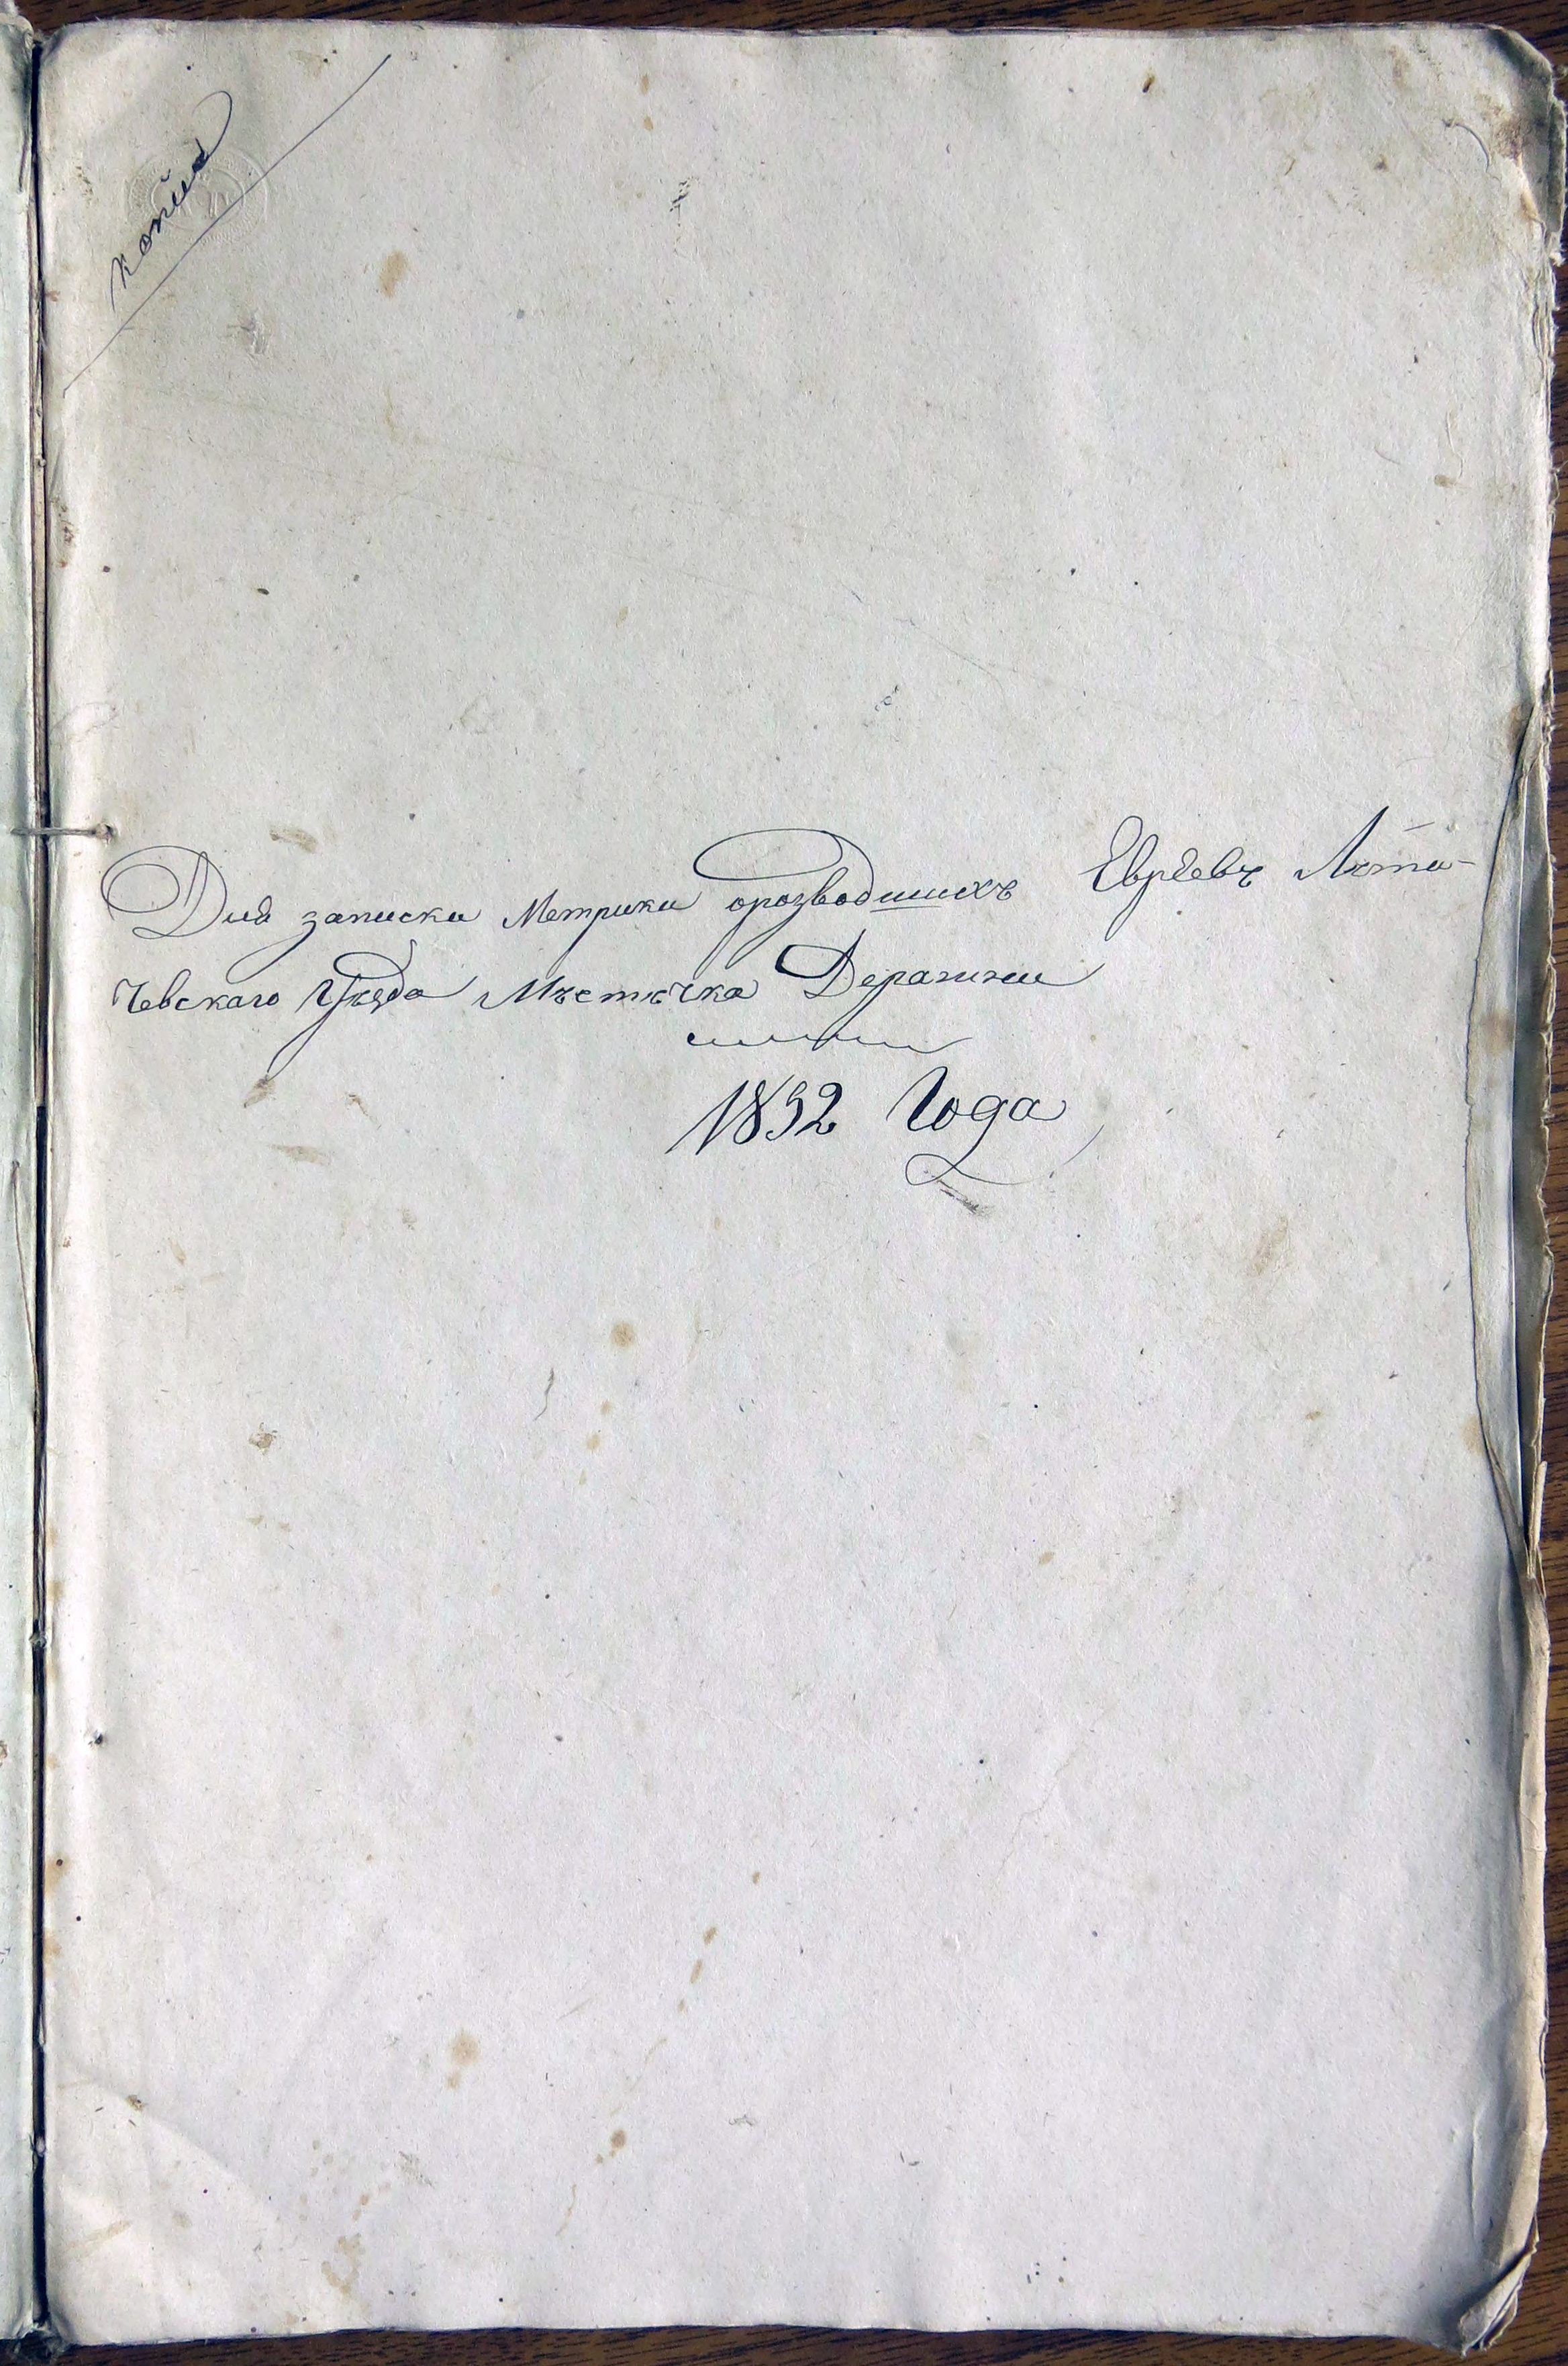 копия
Для записки Метрики оразводшихъ Евреевъ Лети-
чевскаго Уѣзда Мѣстечка Деражни
1852 Года